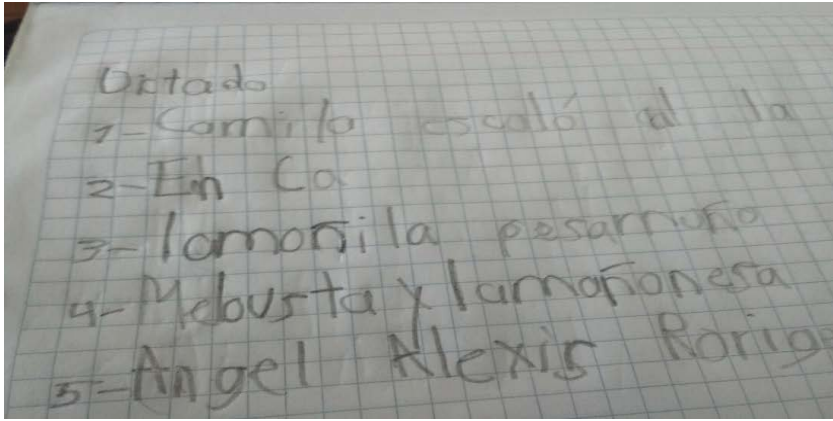 Dictado
1-Camilo escaló al la
2-En Ca
3-lamoñila pesamoño
4-Mebusta y lamañonesa
5-Angel Alexis Rorig